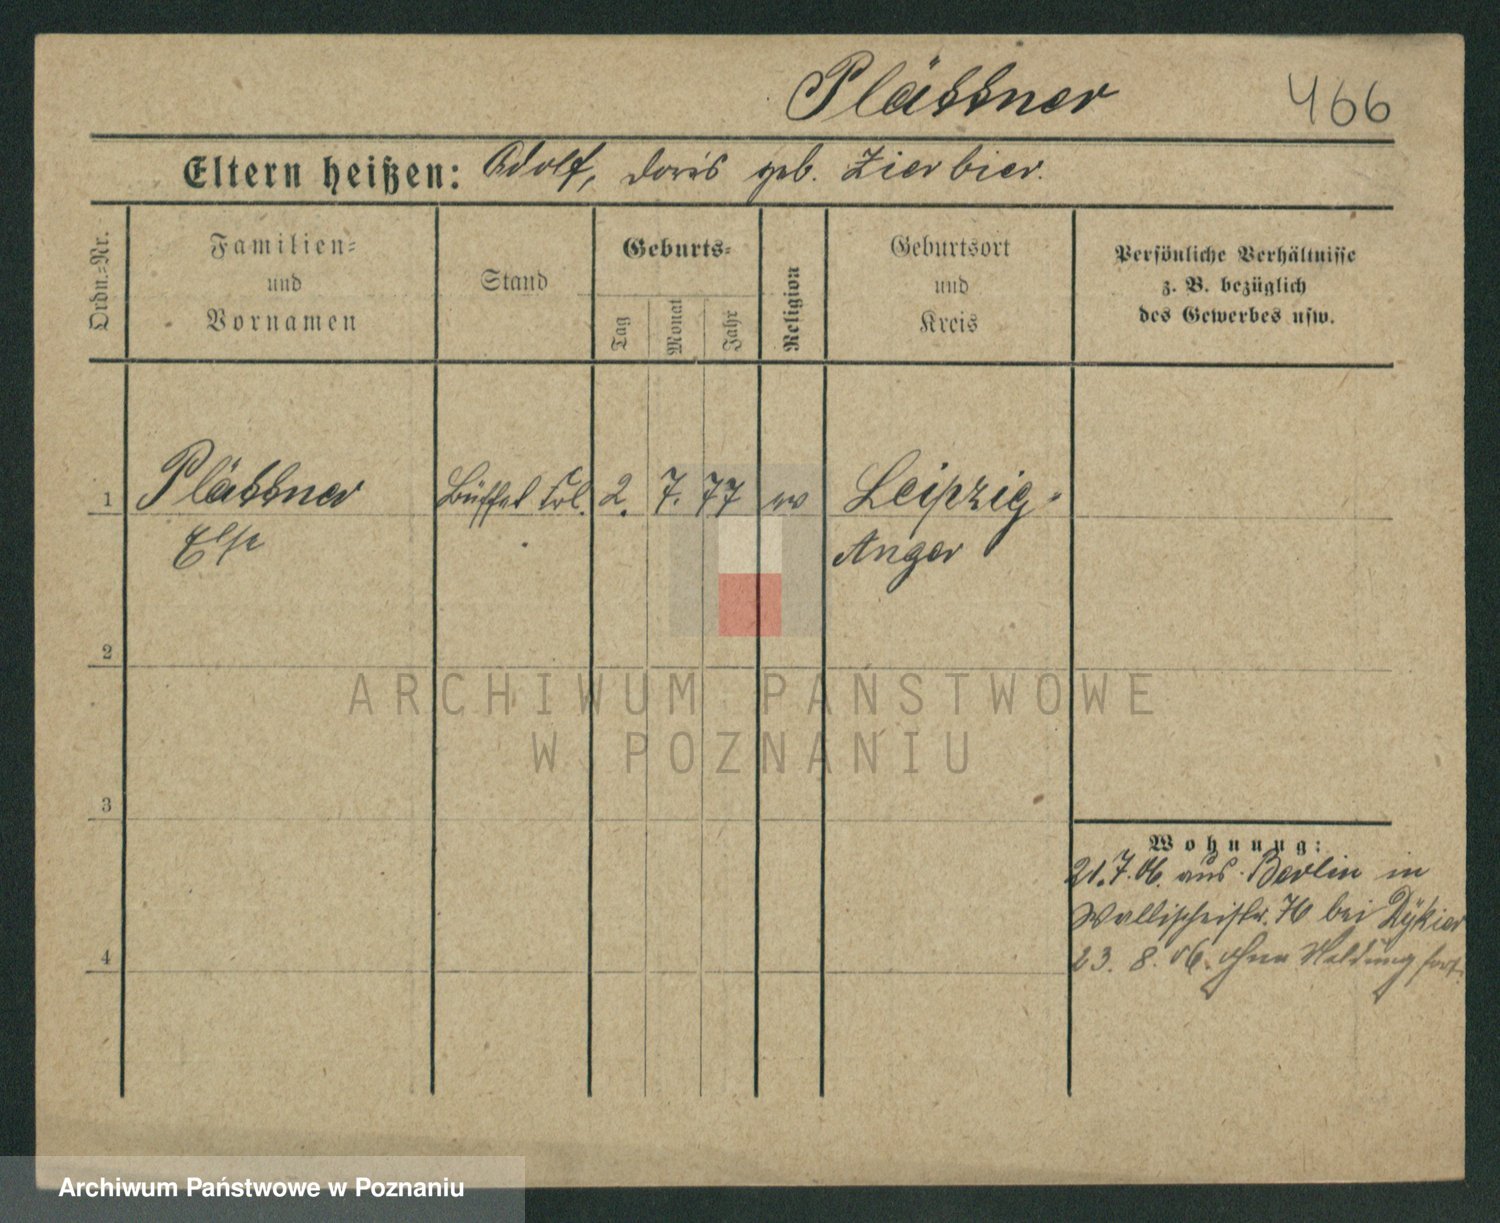 Plässner 466
Eltern heißen: Adolf, Doris geb. Zierbier.
Ordn.-Nr.
Familien-
und
Vornamen
Stand
Geburts-
Tag
Monat
Jahr
Religion
Geburtsort
und
Kreis
Persönliche Verhältnisse
z. B. bezüglich
des Gewerbes usw.
1 Plässner Büffet Frl. 2. 7. 77 ev Leipzig-
Else Anger
2
ARCHIWUM PAŃSTWOWE
W POZNANIU
3
Wohnung:
21.7.06. aus Berlin in
Wallischeistr. 76 bei Dykier
4 23. 8. 06. ohne Meldung fort.
Archiwum Państwowe w Poznaniu